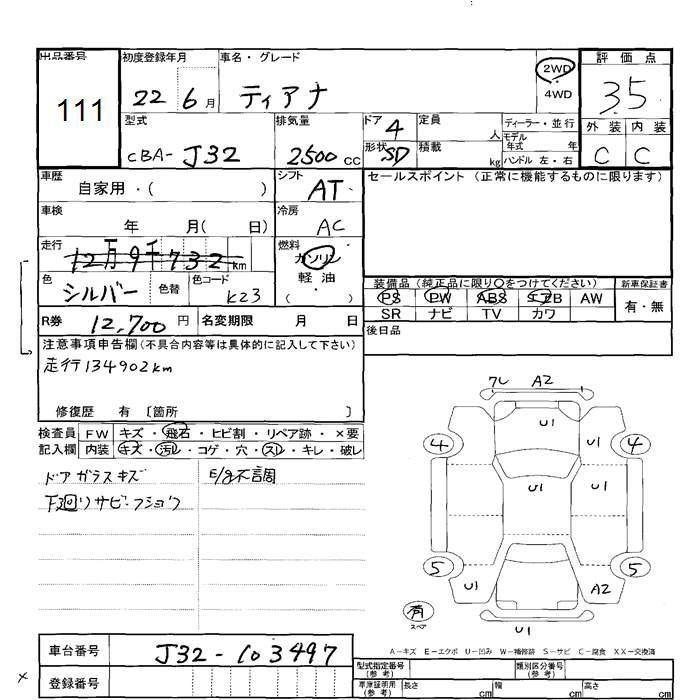 出品番号
111
初度登録年月
22 6月
車名・グレード
ティアナ
2WD
・
4WD
評価点
3.5
外装 内装
C C
型式
CBA- J32
排気量
2500 CC
ドア 4
形状 SD
定員
人
積載
kg
ディーラー・並行
モデル年式 年
ハンドル 左・右
車歴
自家用・( )
シフト
AT
セールスポイント (正常に機能するものに限ります)
車検
年 月( 日)
冷房
AC
走行
12万9千732km
燃料
ガソリン
軽油
( )
色
シルバー
色替
色コード
K23
装備品 (純正品に限り○をつけてください)
PS PW ABS エアB AW
SR ナビ TV カワ
新車保証書
有・無
R券 12,700円
名変期限 月 日
後日品
注意事項申告欄(不具合内容等は具体的に記入して下さい)
走行134902km
修復歴 有 〔箇所 〕
検査員記入欄
FW キズ・飛石・ヒビ割・リペア跡・×要
内装 キズ・汚レ・コゲ・穴・スレ・キレ・破レ
ドアガラスキズ
E/g不調
下廻リサビ・フショク
7L A2
U1
U1
4 4
U1
U1
5 5
U1
A2
有
スペア
U1
A-キズ E-エクボ U-凹み W-補修跡 S-サビ C-腐食 XX-交換済
車台番号
J32-103497
登録番号
型式指定番号(参考)
類別区分番号(参考)
車庫証明用(参考) 長さ cm 幅 cm 高さ cm
×